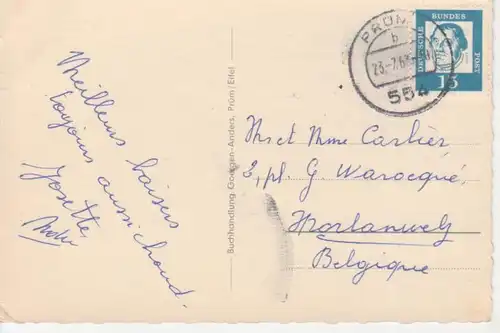 Meilleurs baisers
toujours aussi chaud.
Josette
Buchhandlung Goergen-Anders, Prüm/Eifel
PRÜM
b
23.-7.63
554
DEUTSCHE
BUNDES
POST
15
Mr et Mme Cartier
2, pl. G. Warocqué,
Morlanwelz
Belgique